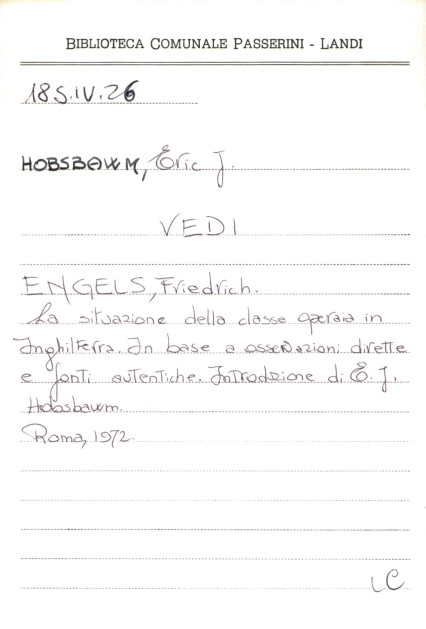 BIBLIOTECA COMUNALE PASSERINI - LANDI
18S.IV.26
HOBSBAWM, Eric J.
VEDI
ENGELS, Friedrich.
La situazione della classe operaia in
Inghilterra. In base a osservazioni dirette
e fonti autentiche. Introduzione di E. J.
Hobsbawm.
Roma, 1972.
LC